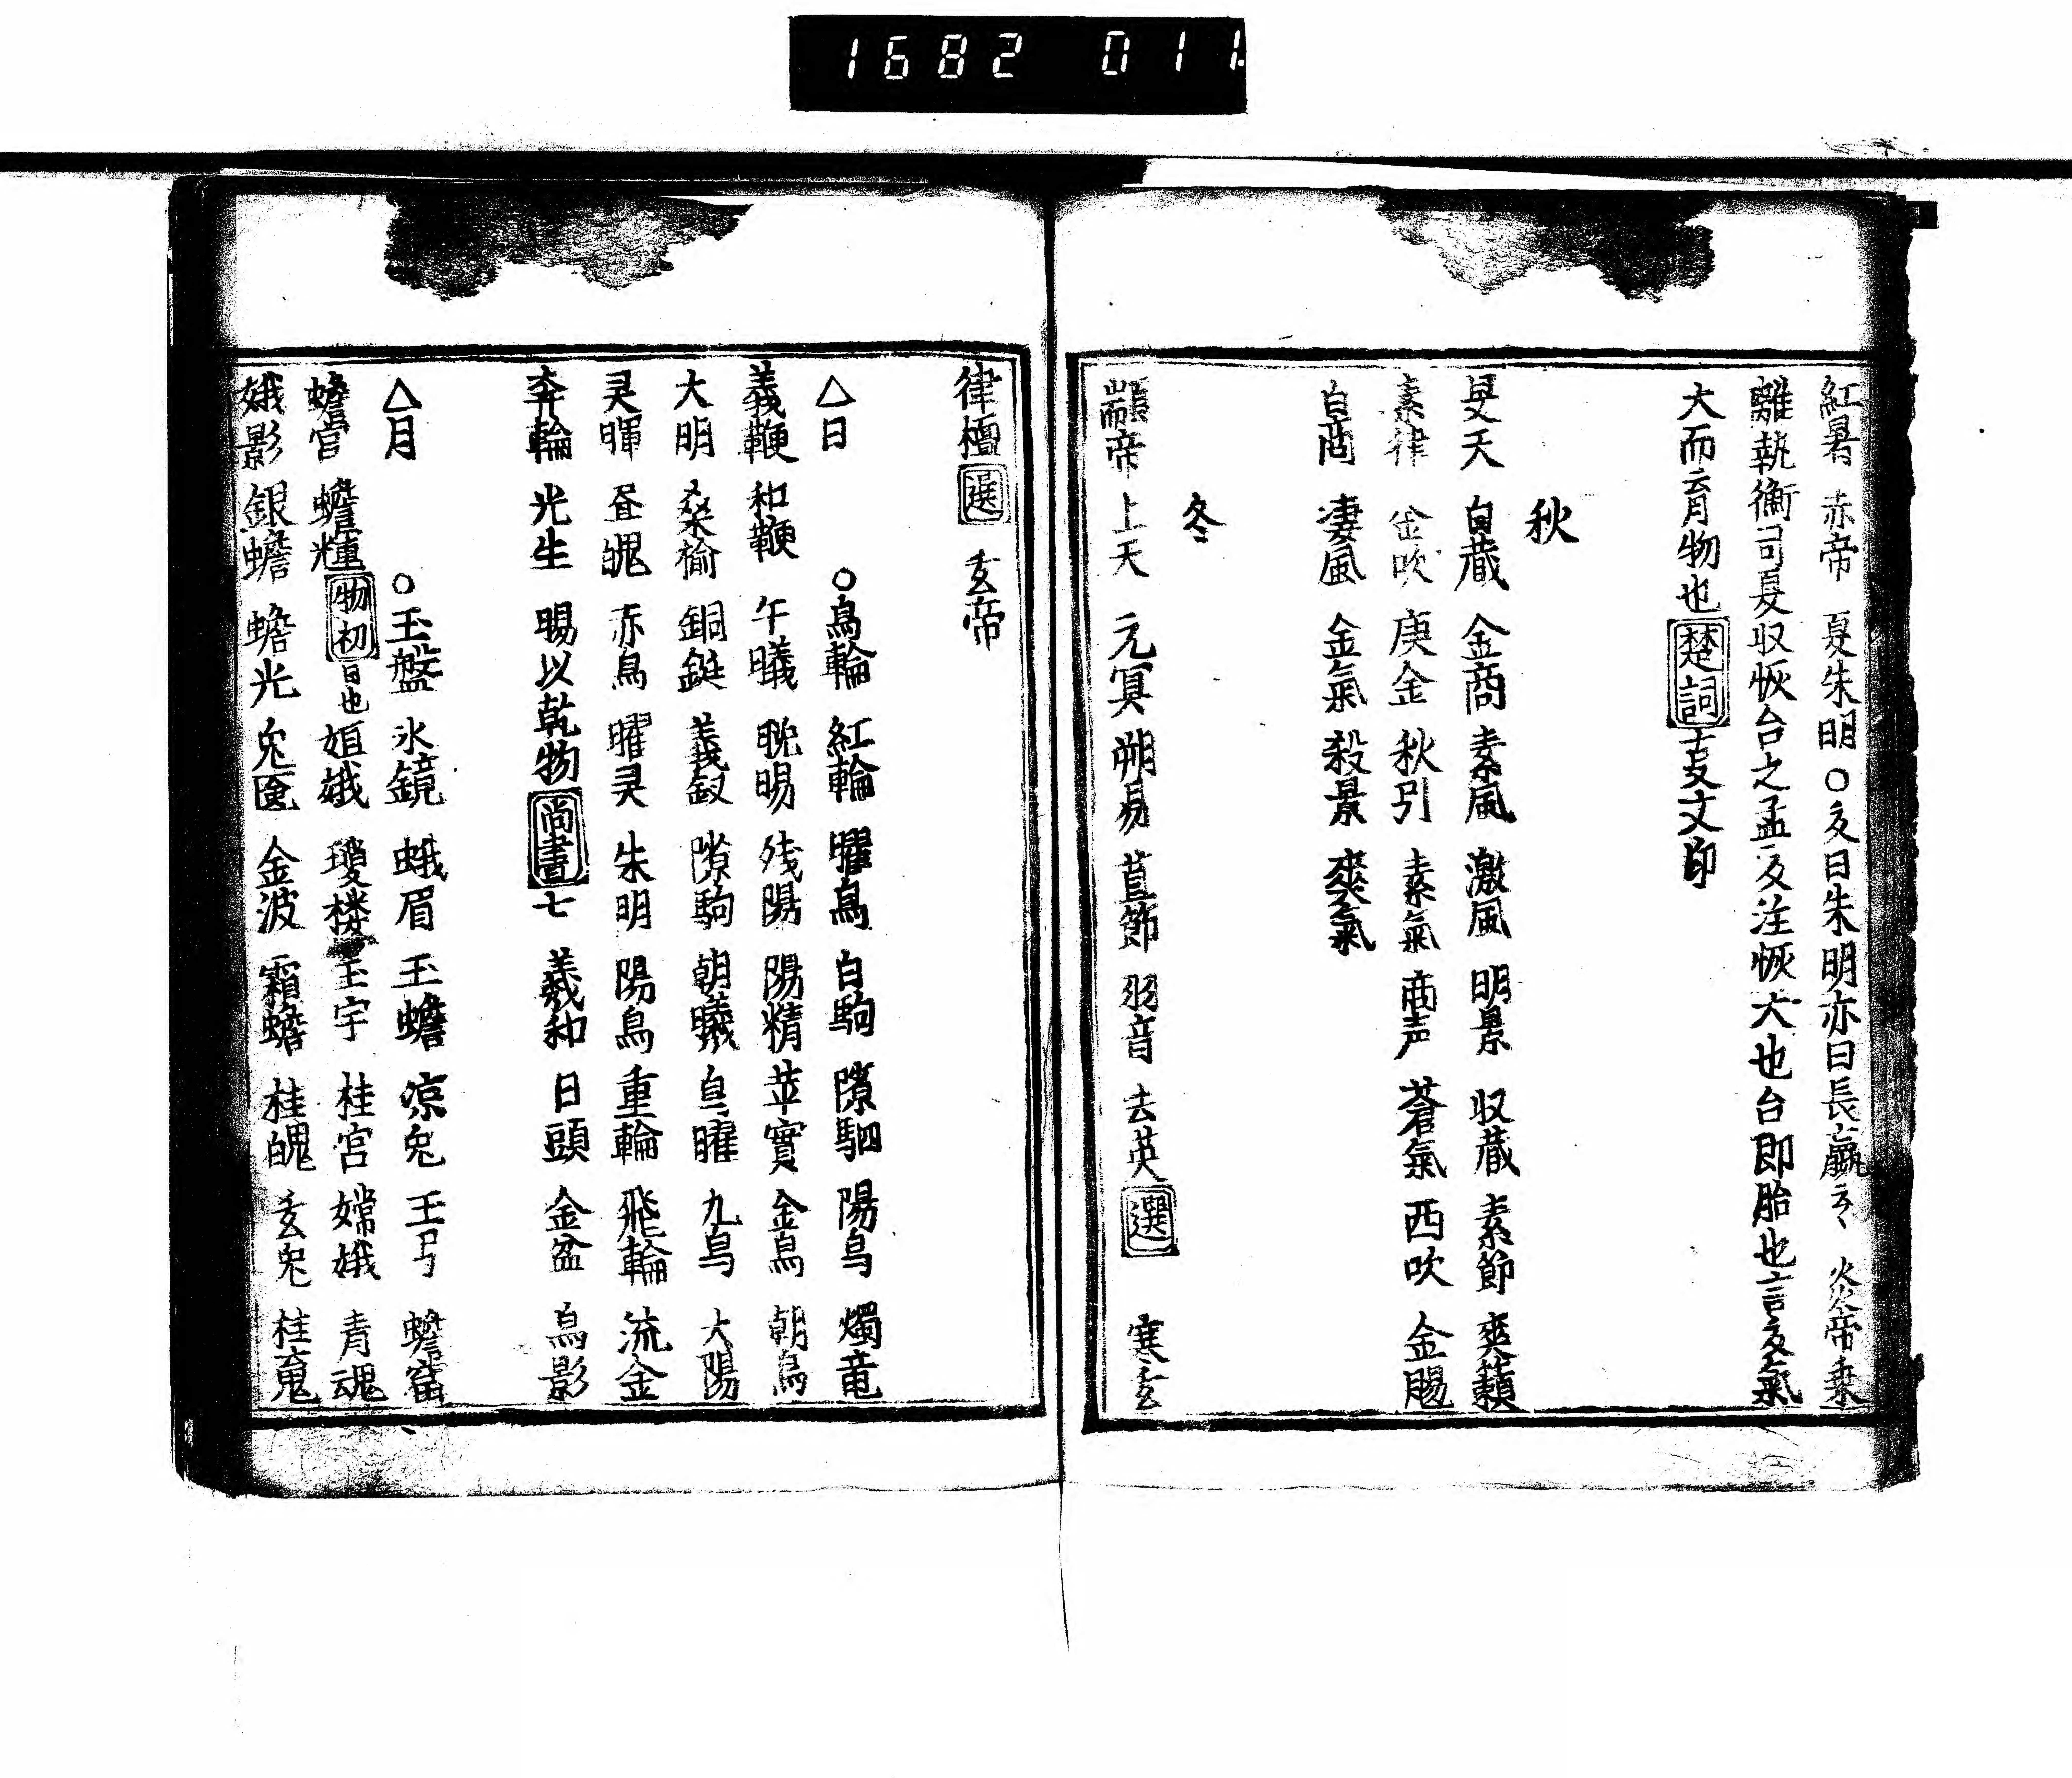 1682 011
紅暑 赤帝 夏朱明 ○夂曰朱明亦曰長嬴云々 炎帝乗
離執衡司夏収恢台之孟夂注恢大也台即胎也言夂氣
大而育物也 楚詞 文印
秋
旻天 白蔵 金商 素風 激風 明景 収蔵 素節 爽籟
素律 金吹 庚金 秋引 素氣 商声 蒼氣 西吹 金飈
白商 凄風 金氣 殺景 爽氣
冬
顓帝 上天 元冥 朔易 莒節 羽音 去英 選 寒玄
律檀 選 玄帝
△日 ○烏輪 紅輪 曜烏 白駒 隙駟 陽烏 燭竜
義鞭 和鞭 午曦 晩暘 残陽 陽精 苹實 金烏 朝烏
大明 桑榆 銅鉦 義馭 隙駒 朝曦 烏曜 九烏 大陽
灵暉 昼魄 赤烏 曜灵 朱明 陽烏 重輪 飛輪 流金
奔輪 光生 暘以乾物 尚書 七 羲和 日頭 金盆 烏影
△月 ○玉盤 氷鏡 蛾眉 玉蟾 凉兔 玉弓 蟾窟
蟾宮 蟾輝 物初 日也 姮娥 瓊楼 玉宇 桂宮 嫦娥 青魂
娥影 銀蟾 蟾光 兔匳 金波 霜蟾 桂魄 玄兔 桂䰟